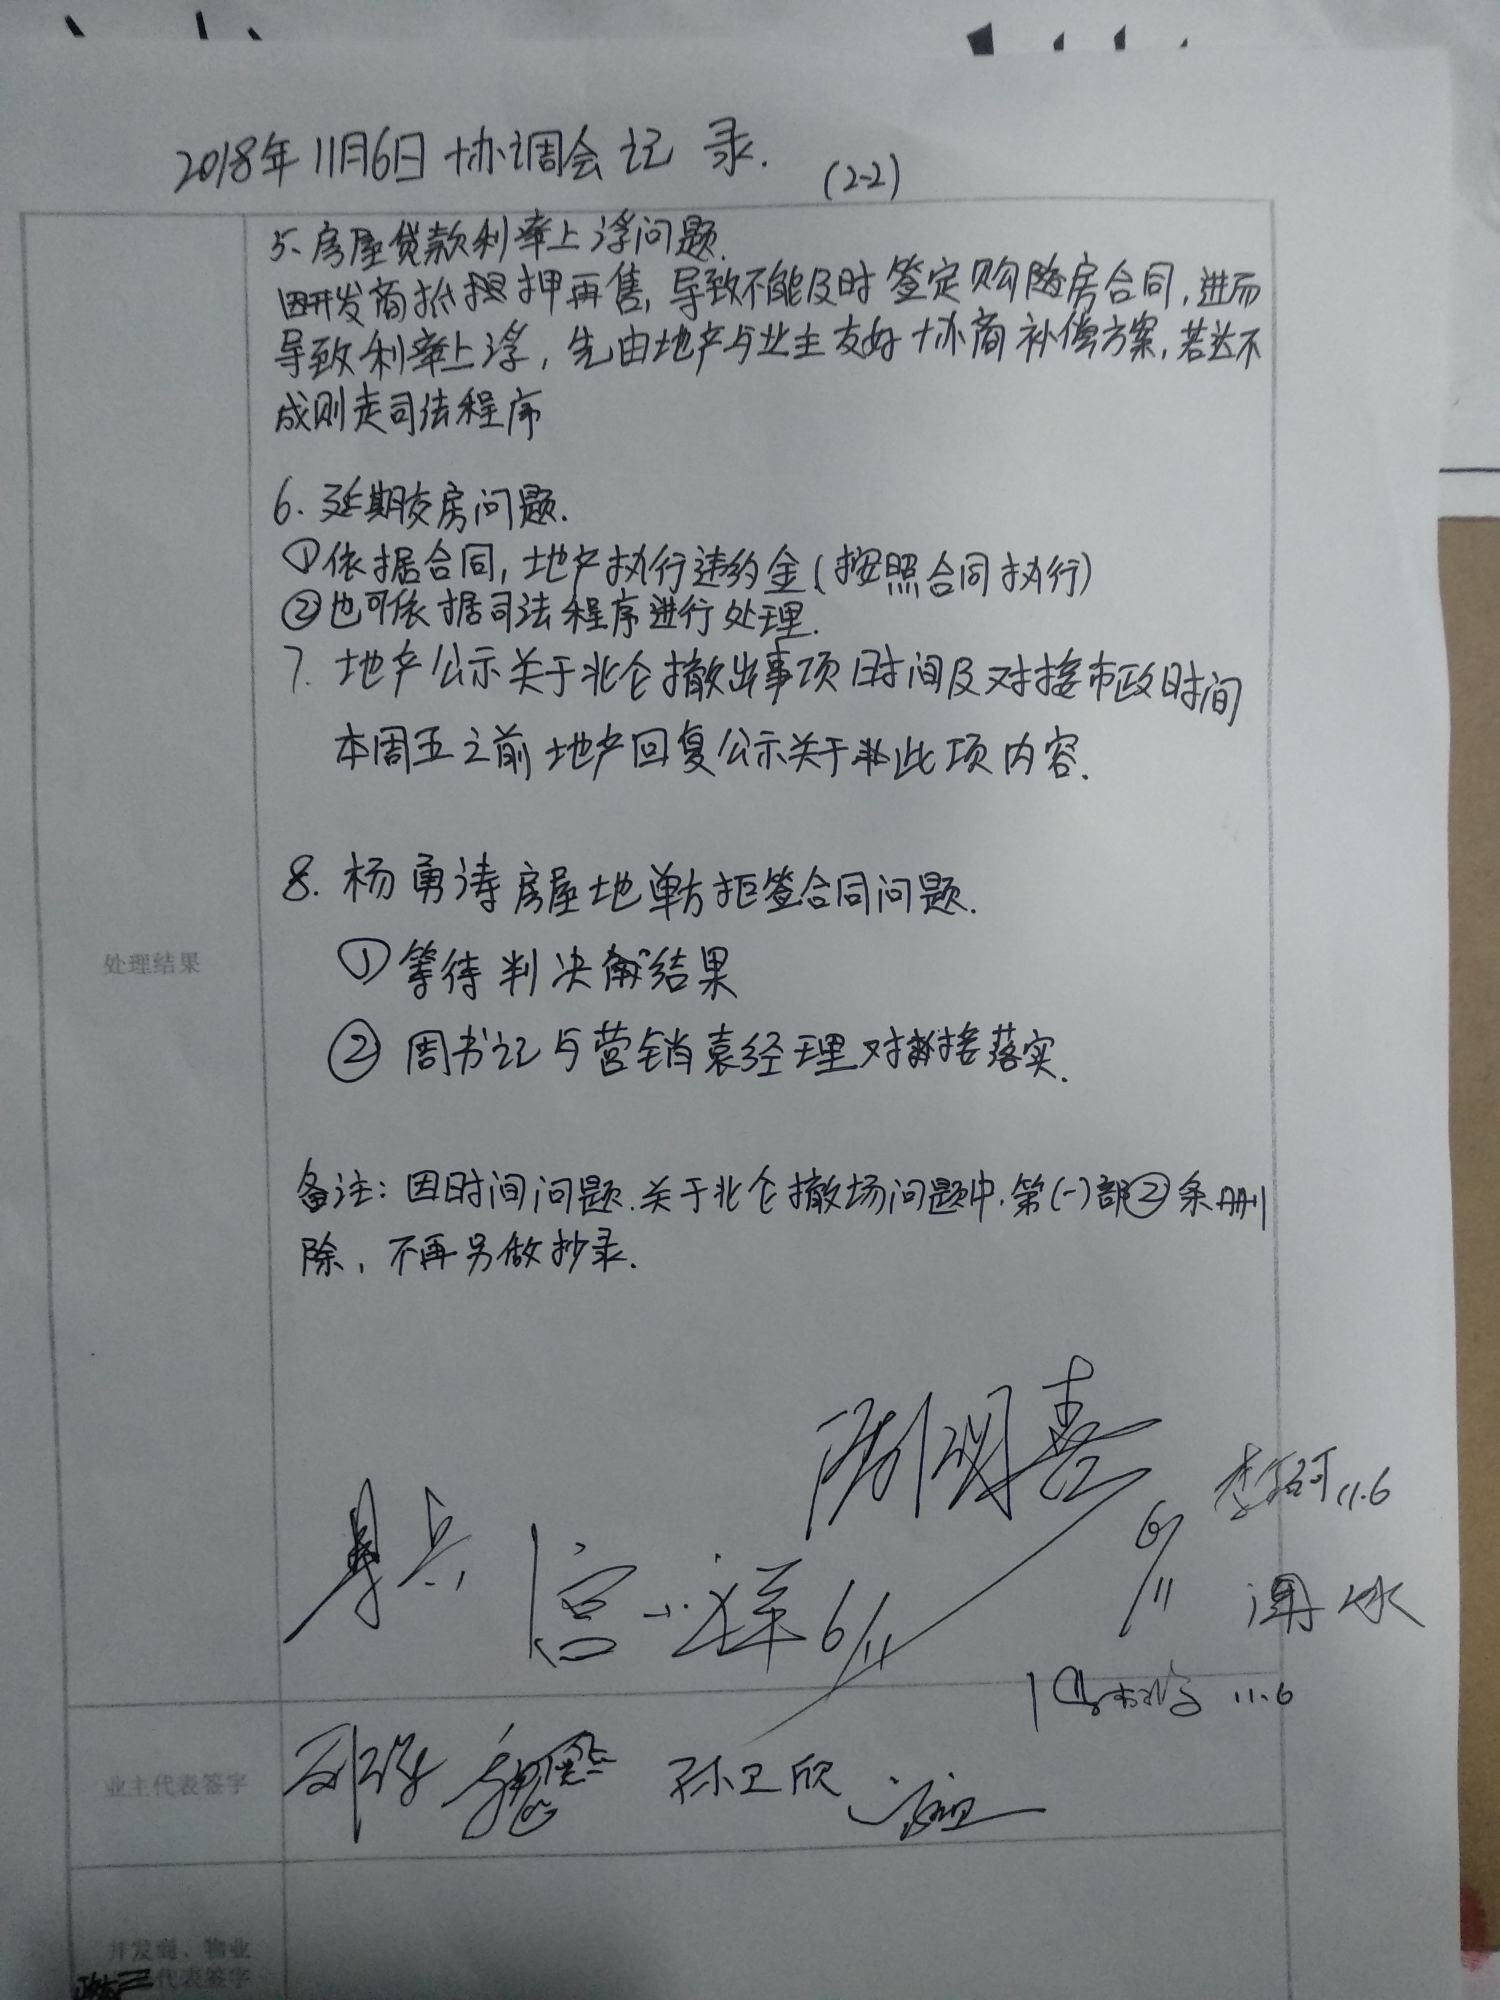 2018年11月6日协调会记录.
(2-2)
5、房屋贷款利率上浮问题.
因开发商抵押再售,导致不能及时签定购房合同,进而
导致利率上浮,先由地产与业主友好协商补偿方案,若达不
成则走司法程序
6.延期交房问题.
①依据合同,地产执行违约金(按照合同执行)
②也可依据司法程序进行处理.
7.地产公示关于北仑撤出事项时间及对接市政时间
本周五之前地产回复公示关于此项内容.
8.杨勇涛房屋地单方拒签合同问题.
处理结果
①等待判决结果
②周书记与营销袁经理对接落实.
备注:因时间问题.关于北仑撤场问题中.第(一)部②条删
除,不再另做抄录.
11.6
6/11
6/11
11.6
业主代表签字
孙卫欣
开发商、物业
代表签字